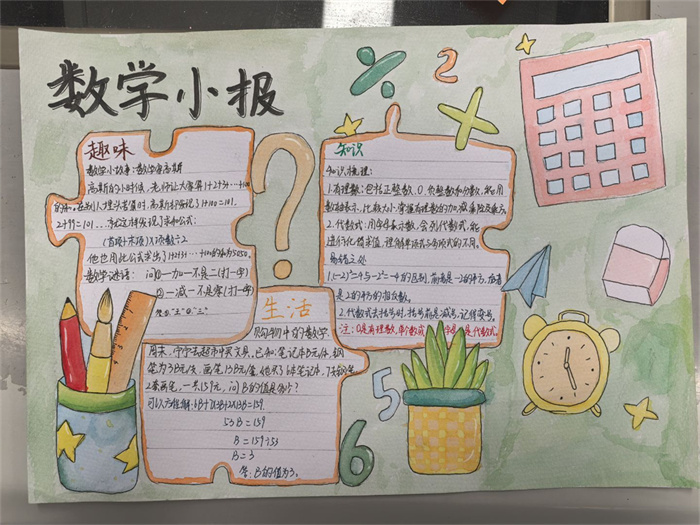 数学小报
趣味
数学小故事:数学家高斯
高斯的小时候,老师让大家算1+2+3+…+100
的和。在别人埋头苦算时,高斯却发现了1+100=101.
2+99=101……就这样发现了求和公式:
(首项+末项)×项数÷2
他也用此公式求出了1+2+3+…+100的值为5050.
数学谜语:
一加一不是二(打一字)
②一减一不是零(打一字)
知识
知识梳理:
1.有理数:包括正整数、0、负整数和分数,能用
数轴表示、比较大小,掌握有理数的加减乘除及乘方。
2.代数式:用字母表示数,会列代数式,能
进行化简求值,理解单项式与多项式的不同。
易错之处
1.(-2)²=4与-2²=-4的区别,前者是-2的平方,后者
是2的平方的相反数。
2.代数式去括号时,括号前是减号,记得变号。
注:0是有理数,单个数或
是代数式。
生活
购物中的数学
周末,宁宁去超市买文具,已知:笔记本B元/本,钢
笔为3B元/支,画笔13B元/盒,他买了6本笔记本,7支钢笔
2盒画笔,一共159元,问B的值是多少?
可以方程解:6B+7×3B+2×13B=159
53B=159
B=159÷53
B=3
答:B的值为3。
÷
2
×
5
6